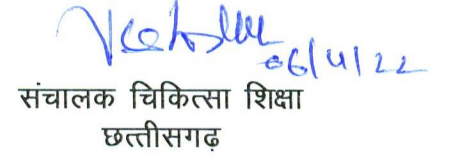 06/4/22
संचालक चिकित्सा शिक्षा
छत्तीसगढ़